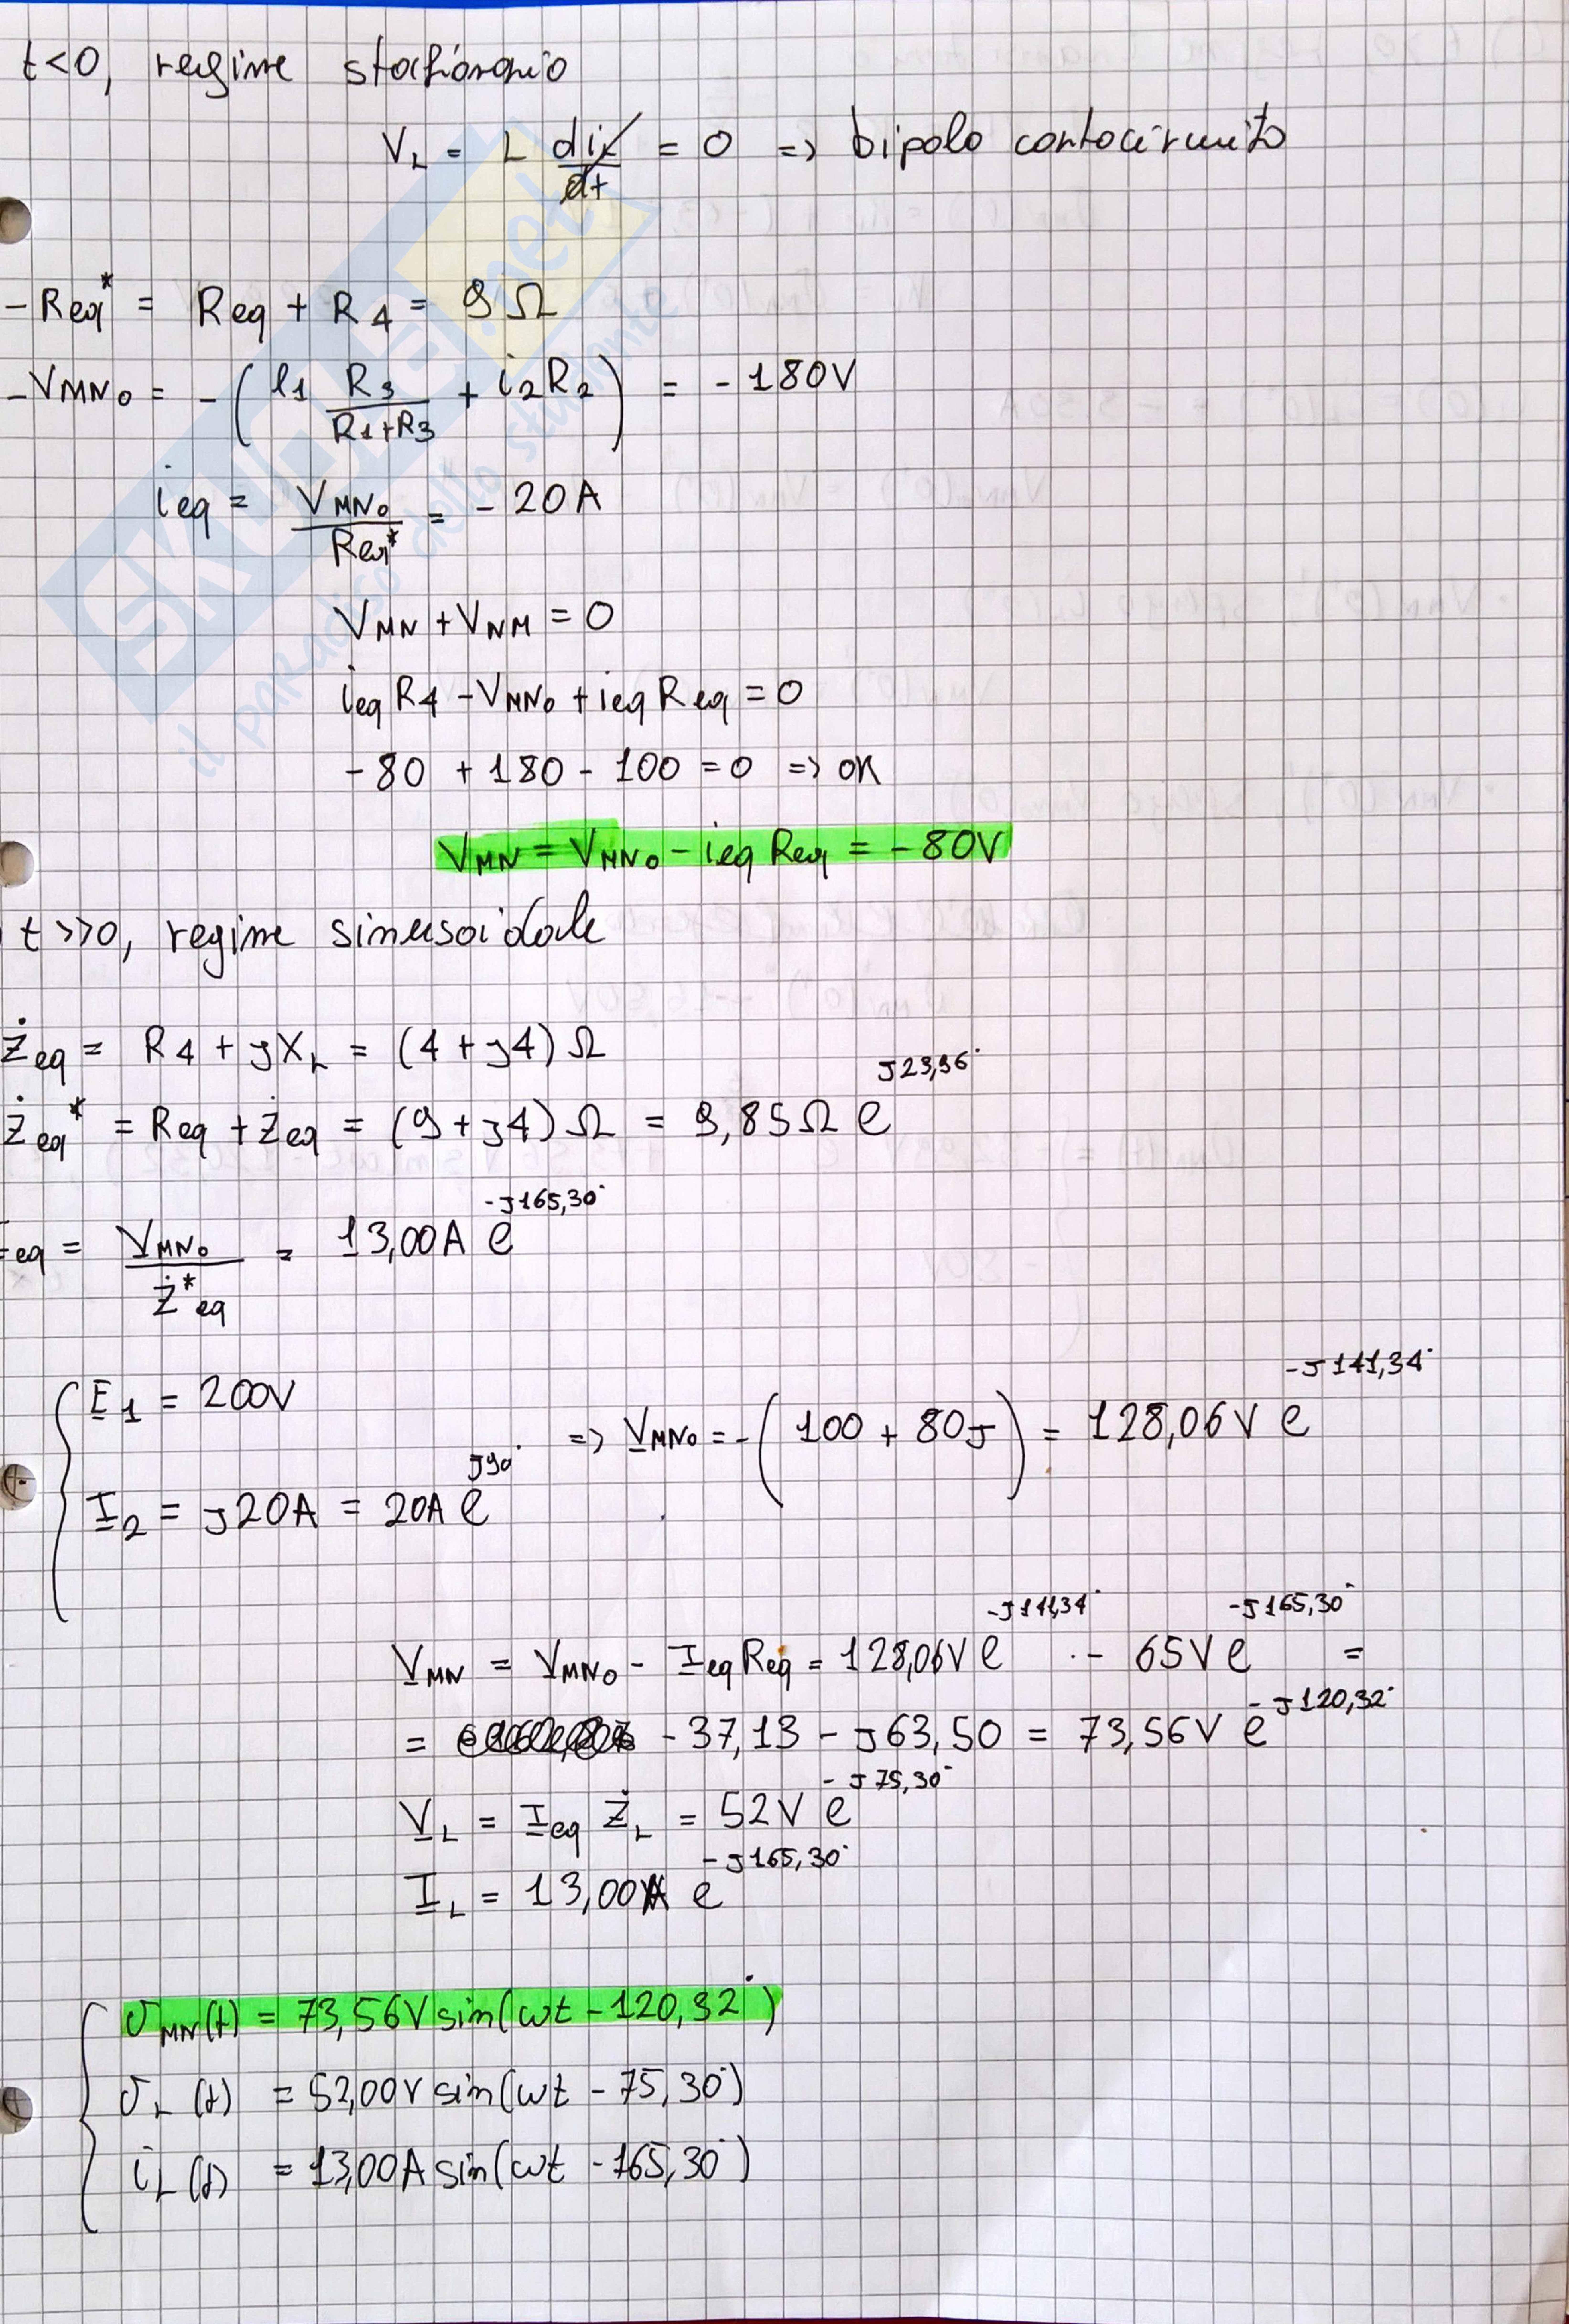 t<0, regime stazionario
V_L = L di_L/dt = 0 => bipolo cortocircuito
- Req* = Req + R4 = 9 Ω
- VMN0 = - (l1 R3/(R1+R3) + i2R2) = - 180V
ieq = VMN0/Req* = - 20A
VMN + VNM = 0
ieq R4 - VMN0 + ieq Req = 0
-80 + 180 - 100 = 0 => OK
VMN = VMN0 - ieq Req = - 80V
t >>0, regime sinusoidale
Żeq = R4 + jXL = (4 + j4) Ω
Żeq* = Req + Żeq = (9 + j4) Ω = 9,85 Ω e^j23,96°
Ieq = VMN0/Ż*eq = 13,00A e^-j165,30°
E1 = 200V
I2 = j20A = 20A e^j90° => VMN0 = - (100 + 80j) = 128,06V e^-j141,34°
VMN = VMN0 - Ieq Req = 128,06V e^-j141,34° - 65V e^-j165,30° =
= - 37,13 - j63,50 = 73,56V e^-j120,32°
VL = Ieq ŻL = 52V e^-j75,30°
IL = 13,00A e^-j165,30°
vMN(t) = 73,56V sin(ωt - 120,32°)
vL(t) = 52,00V sin(ωt - 75,30°)
iL(t) = 13,00A sin(ωt - 165,30°)
SKUOLA.net
il paradiso dello studente